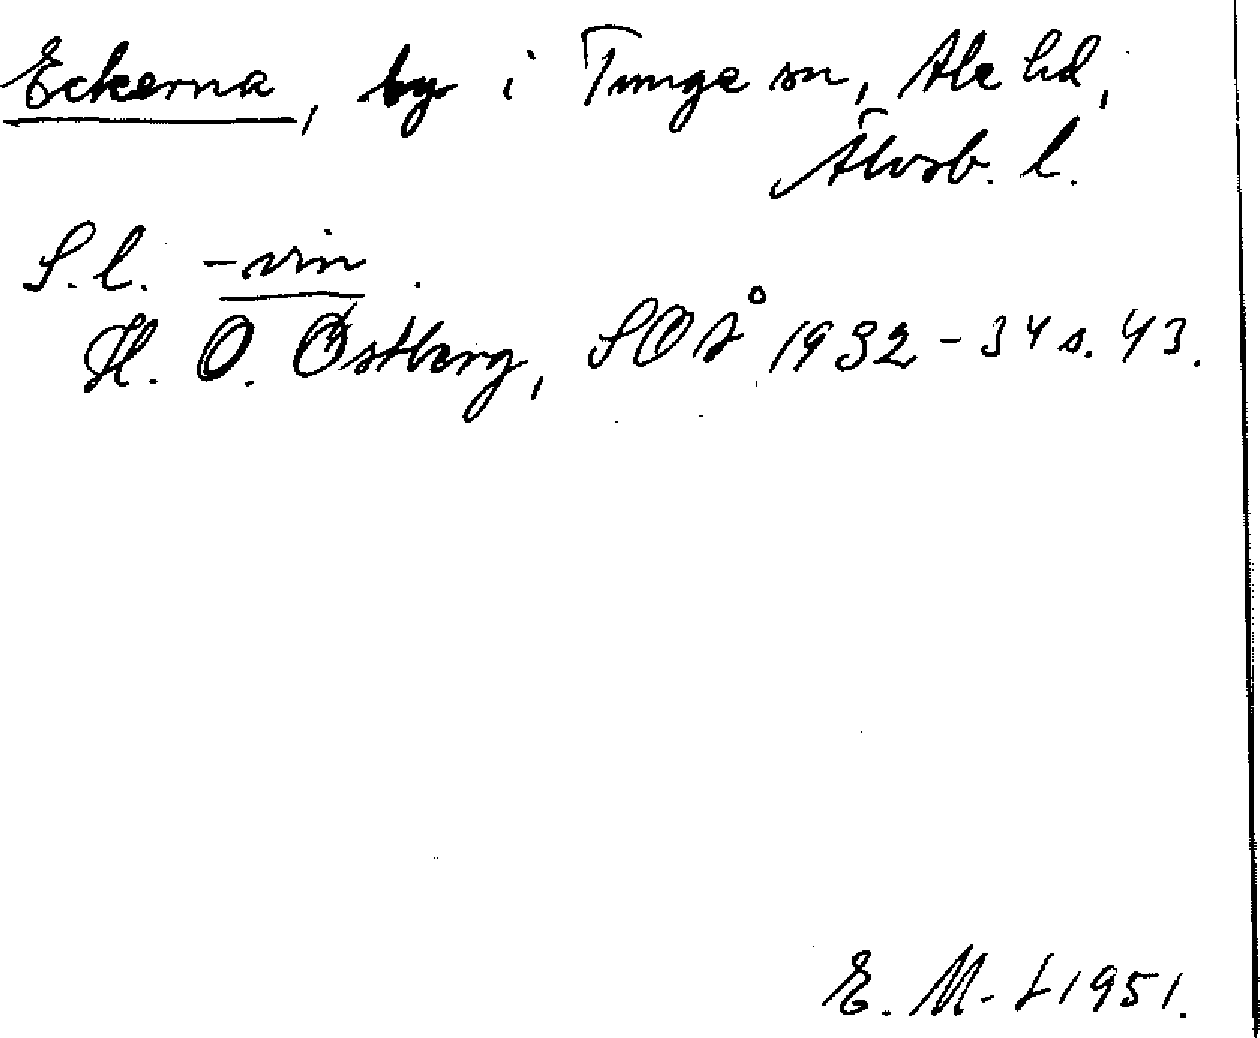 Eckerna, by i Tunge sn, Ale hd,
Älvsb. l.
S.l. -vin.
H. O. Östberg, SOÅ 1932-34 s. 43.
E. M-L 1951.